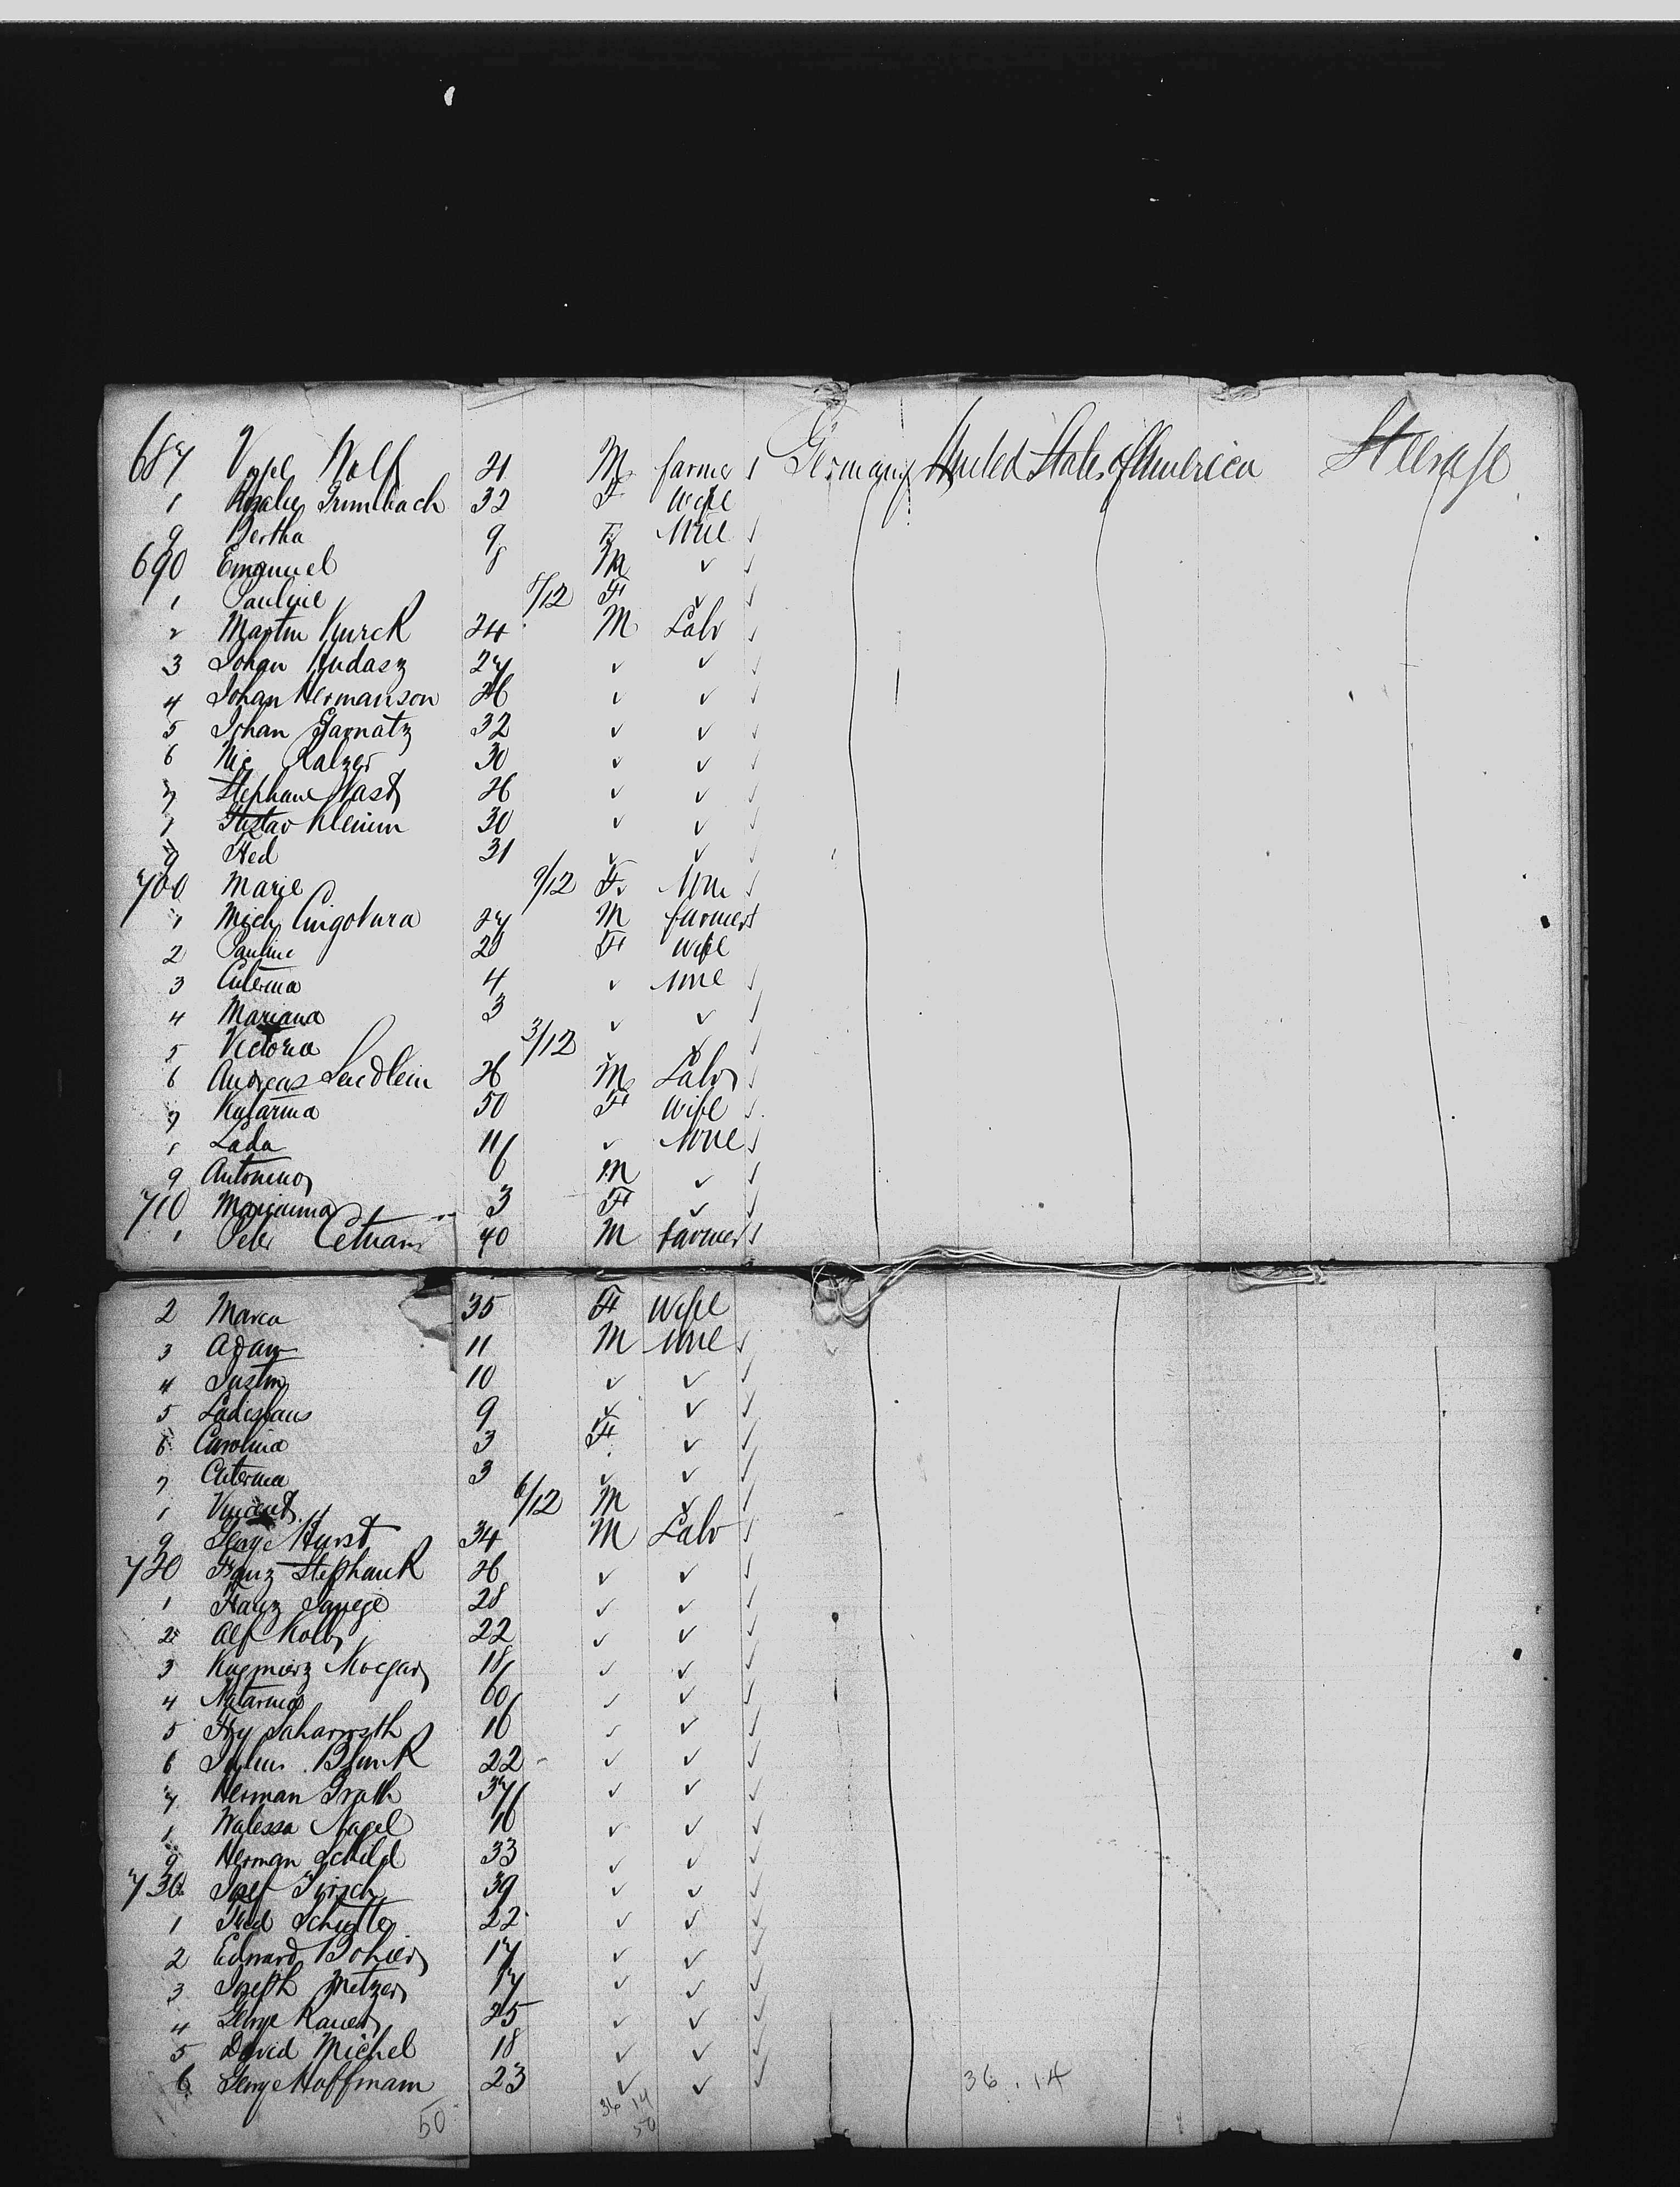 687 Wolf 21 M farmer Germany United States of America Steerage
1 Rosalie Grumbach 32 F Wife
9 Bertha 9 F None
690 Emanuel 8 M ✓
1 Pauline 8/12 F ✓
2 Martin Kurek 24 M Labr
3 Johan Hudasz 27 ✓ ✓
4 Johan Hermanson 26 ✓ ✓
5 Johan Garnatz 32 ✓ ✓
6 Nic Kalzer 30 ✓ ✓
7 Stephan Nast 26 ✓ ✓
Gustav Klemm 30 ✓ ✓
9 Fred 31 ✓ ✓
700 Marie 9/12 F None
1 Mich Cingotura 27 M farmer
2 Pauline 25 F Wife
3 4 ✓ None
4 Mariana 3 ✓ ✓
5 Victoria 3/12 ✓ ✓
6 Andreas Lendlein 26 M Labr
7 Katarina 50 F Wife
8 Lada 11 ✓ None
9 Antonino 6 M ✓
710 Marianna 3 F ✓
1 Peter 40 M farmer
2 Maria 35 F Wife
3 Adam 11 M None
4 Justin 10 ✓ ✓
5 Ladislaus 9 ✓ ✓
6 Carolina 3 F ✓
7 3 ✓ ✓
Vincent 6/12 M ✓
9 George Hurst 34 M Labr
720 Franz Stephank 26 ✓ ✓
1 Franz 28 ✓ ✓
2 Alf Kolb 22 ✓ ✓
3 Kazmierz Mocgar 18 ✓ ✓
4 60 ✓ ✓
5 Hy 16 ✓ ✓
6 Julius Blank 22 ✓ ✓
7 Herman Grath 37 ✓ ✓
Walessa Nagel 16 ✓ ✓
9 Herman Schild 33 ✓ ✓
730 Josef 39 ✓ ✓
1 Fred Schutte 22 ✓ ✓
2 Edward Bohier 17 ✓ ✓
3 Joseph Metzer 17 ✓ ✓
4 George Kauer 25 ✓ ✓
5 David Michel 18 ✓ ✓
6 George Hoffmann 23 ✓ ✓
36 . 14
50
36 14
50